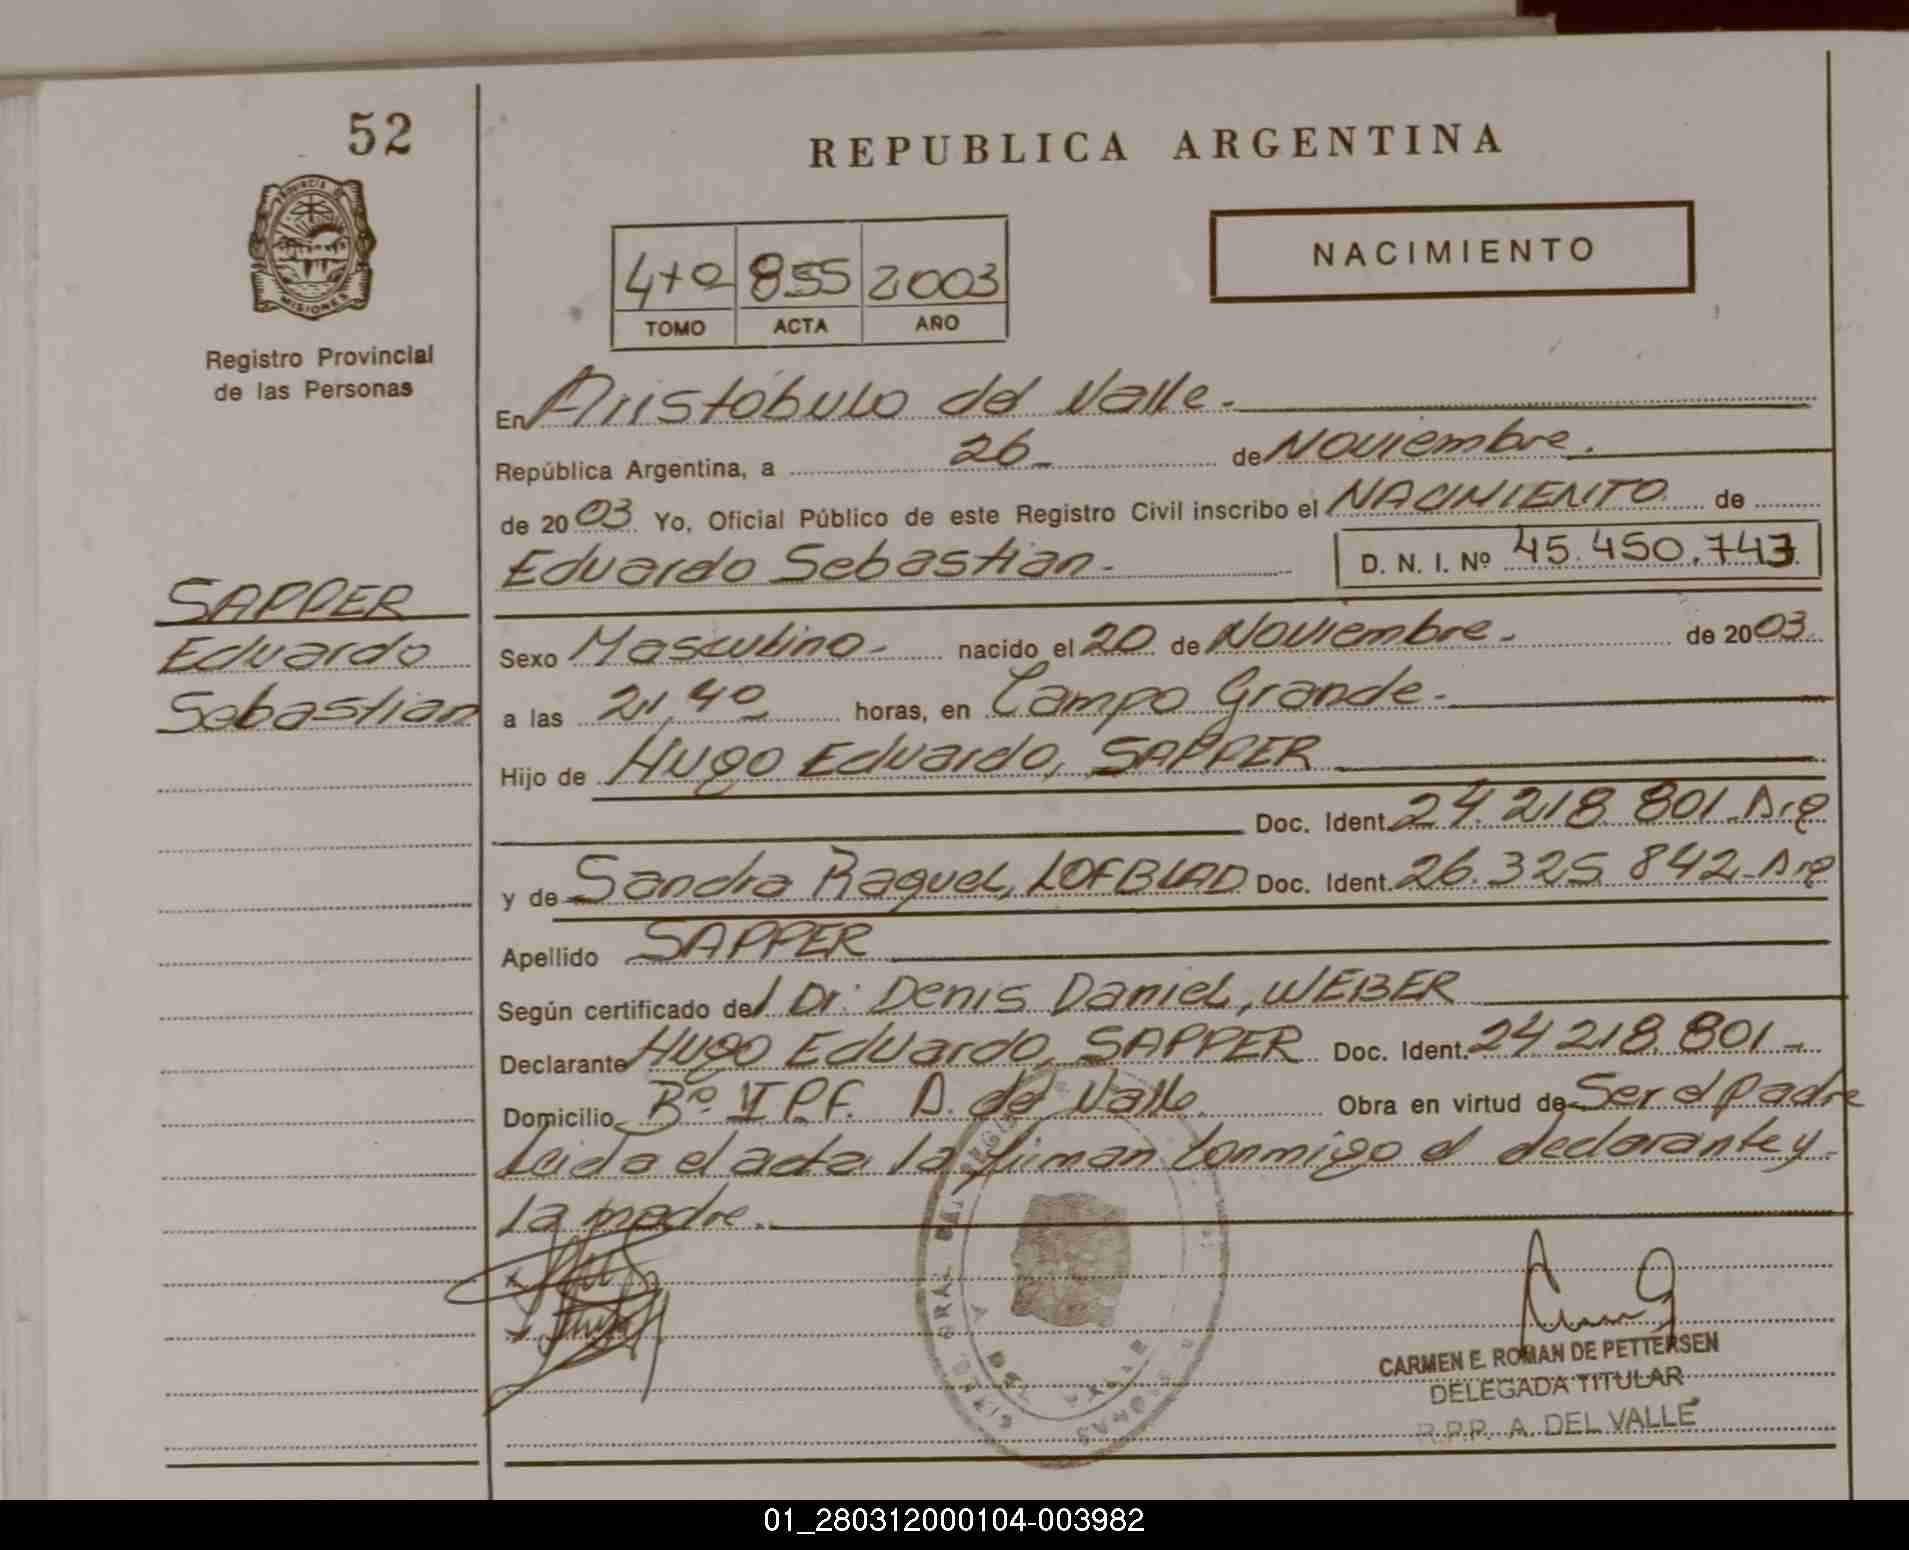 52
REPUBLICA ARGENTINA
PROVINCIA DE
MISIONES
Registro Provincial
de las Personas
4to 855 2003
TOMO ACTA AÑO
NACIMIENTO
En Aristóbulo del Valle.
República Argentina, a 26 de Noviembre.
de 2003 Yo, Oficial Público de este Registro Civil inscribo el NACIMIENTO de
Eduardo Sebastian. D. N. I. Nº 45.450.743
SAPPER
Eduardo
Sebastian
Sexo Masculino. nacido el 20 de Noviembre. de 2003
a las 21,40 horas, en Campo Grande.
Hijo de Hugo Eduardo, SAPPER
Doc. Ident. 24.218.801 Arg
y de Sandra Raquel, LOFBLAD Doc. Ident. 26.325.842 Arg
Apellido SAPPER
Según certificado del Dr. Denis Daniel, WEBER
Declarante Hugo Eduardo, SAPPER Doc. Ident. 24 218.801
Domicilio Bº. I.P.F. A. del Valle. Obra en virtud de Ser el Padre
Leida el acta la firman conmigo el declarante y
la madre.
CARMEN E. ROMAN DE PETTERSEN
DELEGADA TITULAR
R.P.P. A. DEL VALLE
01_280312000104-003982